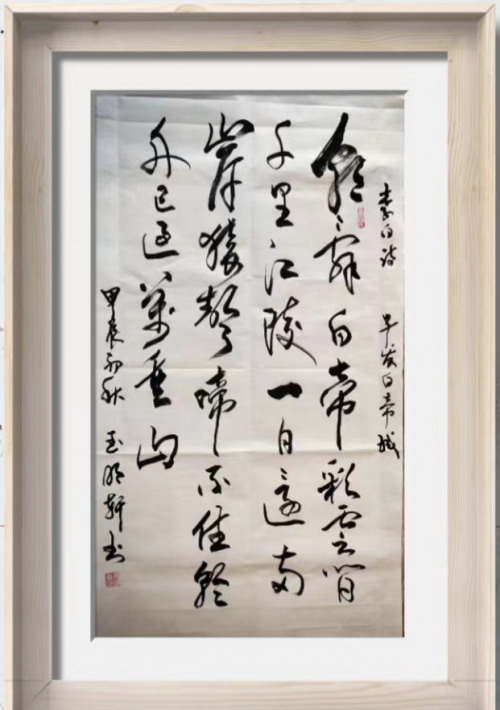 李白诗 早发白帝城
朝辞白帝彩雲間
千里江陵一日還两
岸猿聲啼不住輕
舟已过萬重山
甲辰初秋 玉明轩书